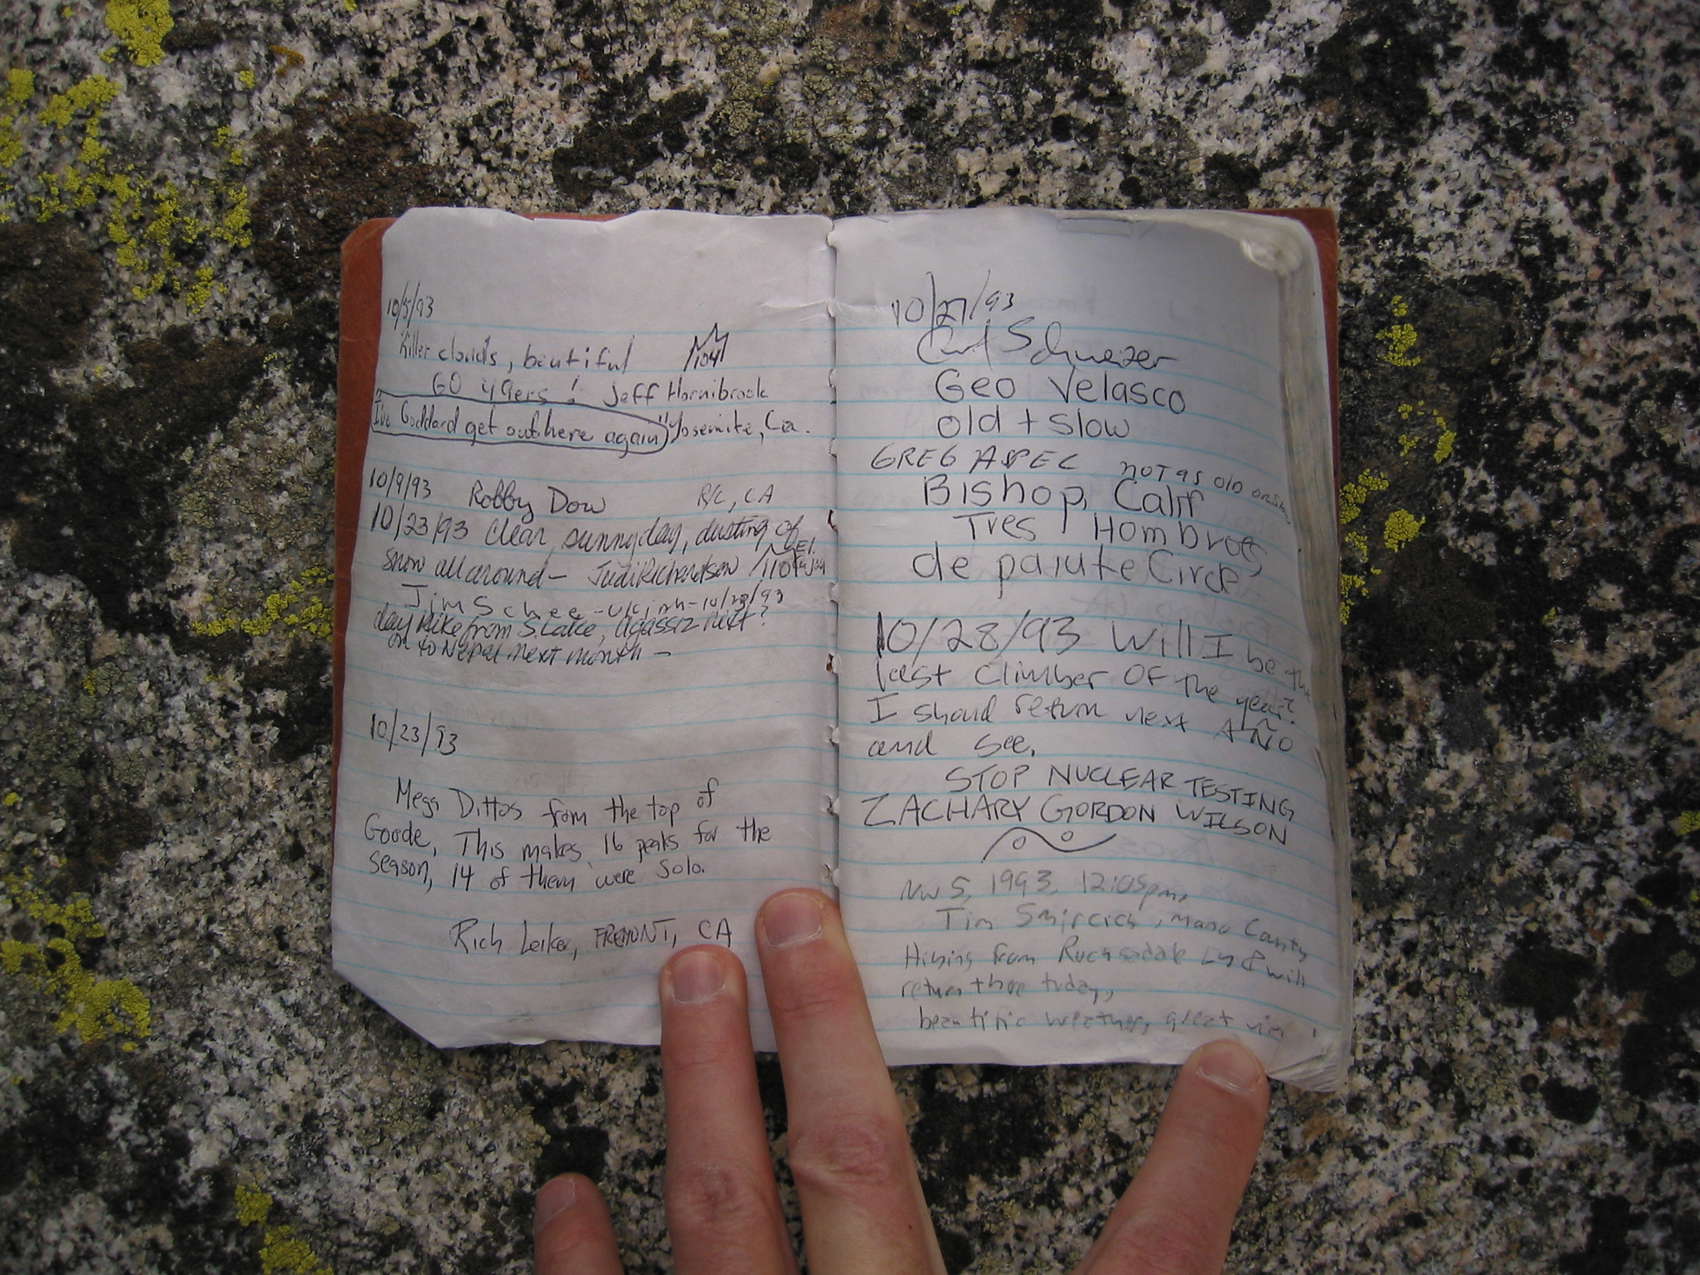 10/5/93
Killer clouds, beutiful
GO 49ers! Jeff Hornibrook
I've Goddard get out here again Yosemite, Ca.
10/9/93 Robby Dow R/C, CA
10/23/93 Clear, sunny day, dusting of
snow all around - Judi Richardson
Jim Schee - Ukiah - 10/23/93
day hike from S. Lake, Agassiz next?
on to Nepal next month -
10/23/93
Mega Dittos from the top of
Goode, This makes 16 peaks for the
season, 14 of them were solo.
Rich Leiker, FREMONT, CA
10/27/93
Geo Velasco
old + slow
GREG not as old
Bishop, Calif
Tres Hombres
de paiute Circle
10/28/93 Will I be the
last climber OF the year?
I should return next AÑO
and see.
STOP NUCLEAR TESTING
ZACHARY GORDON WILSON
Nov 5, 1993, 12:05pm,
Tim Mono County
Hiking from & will
return there today,
weather, great